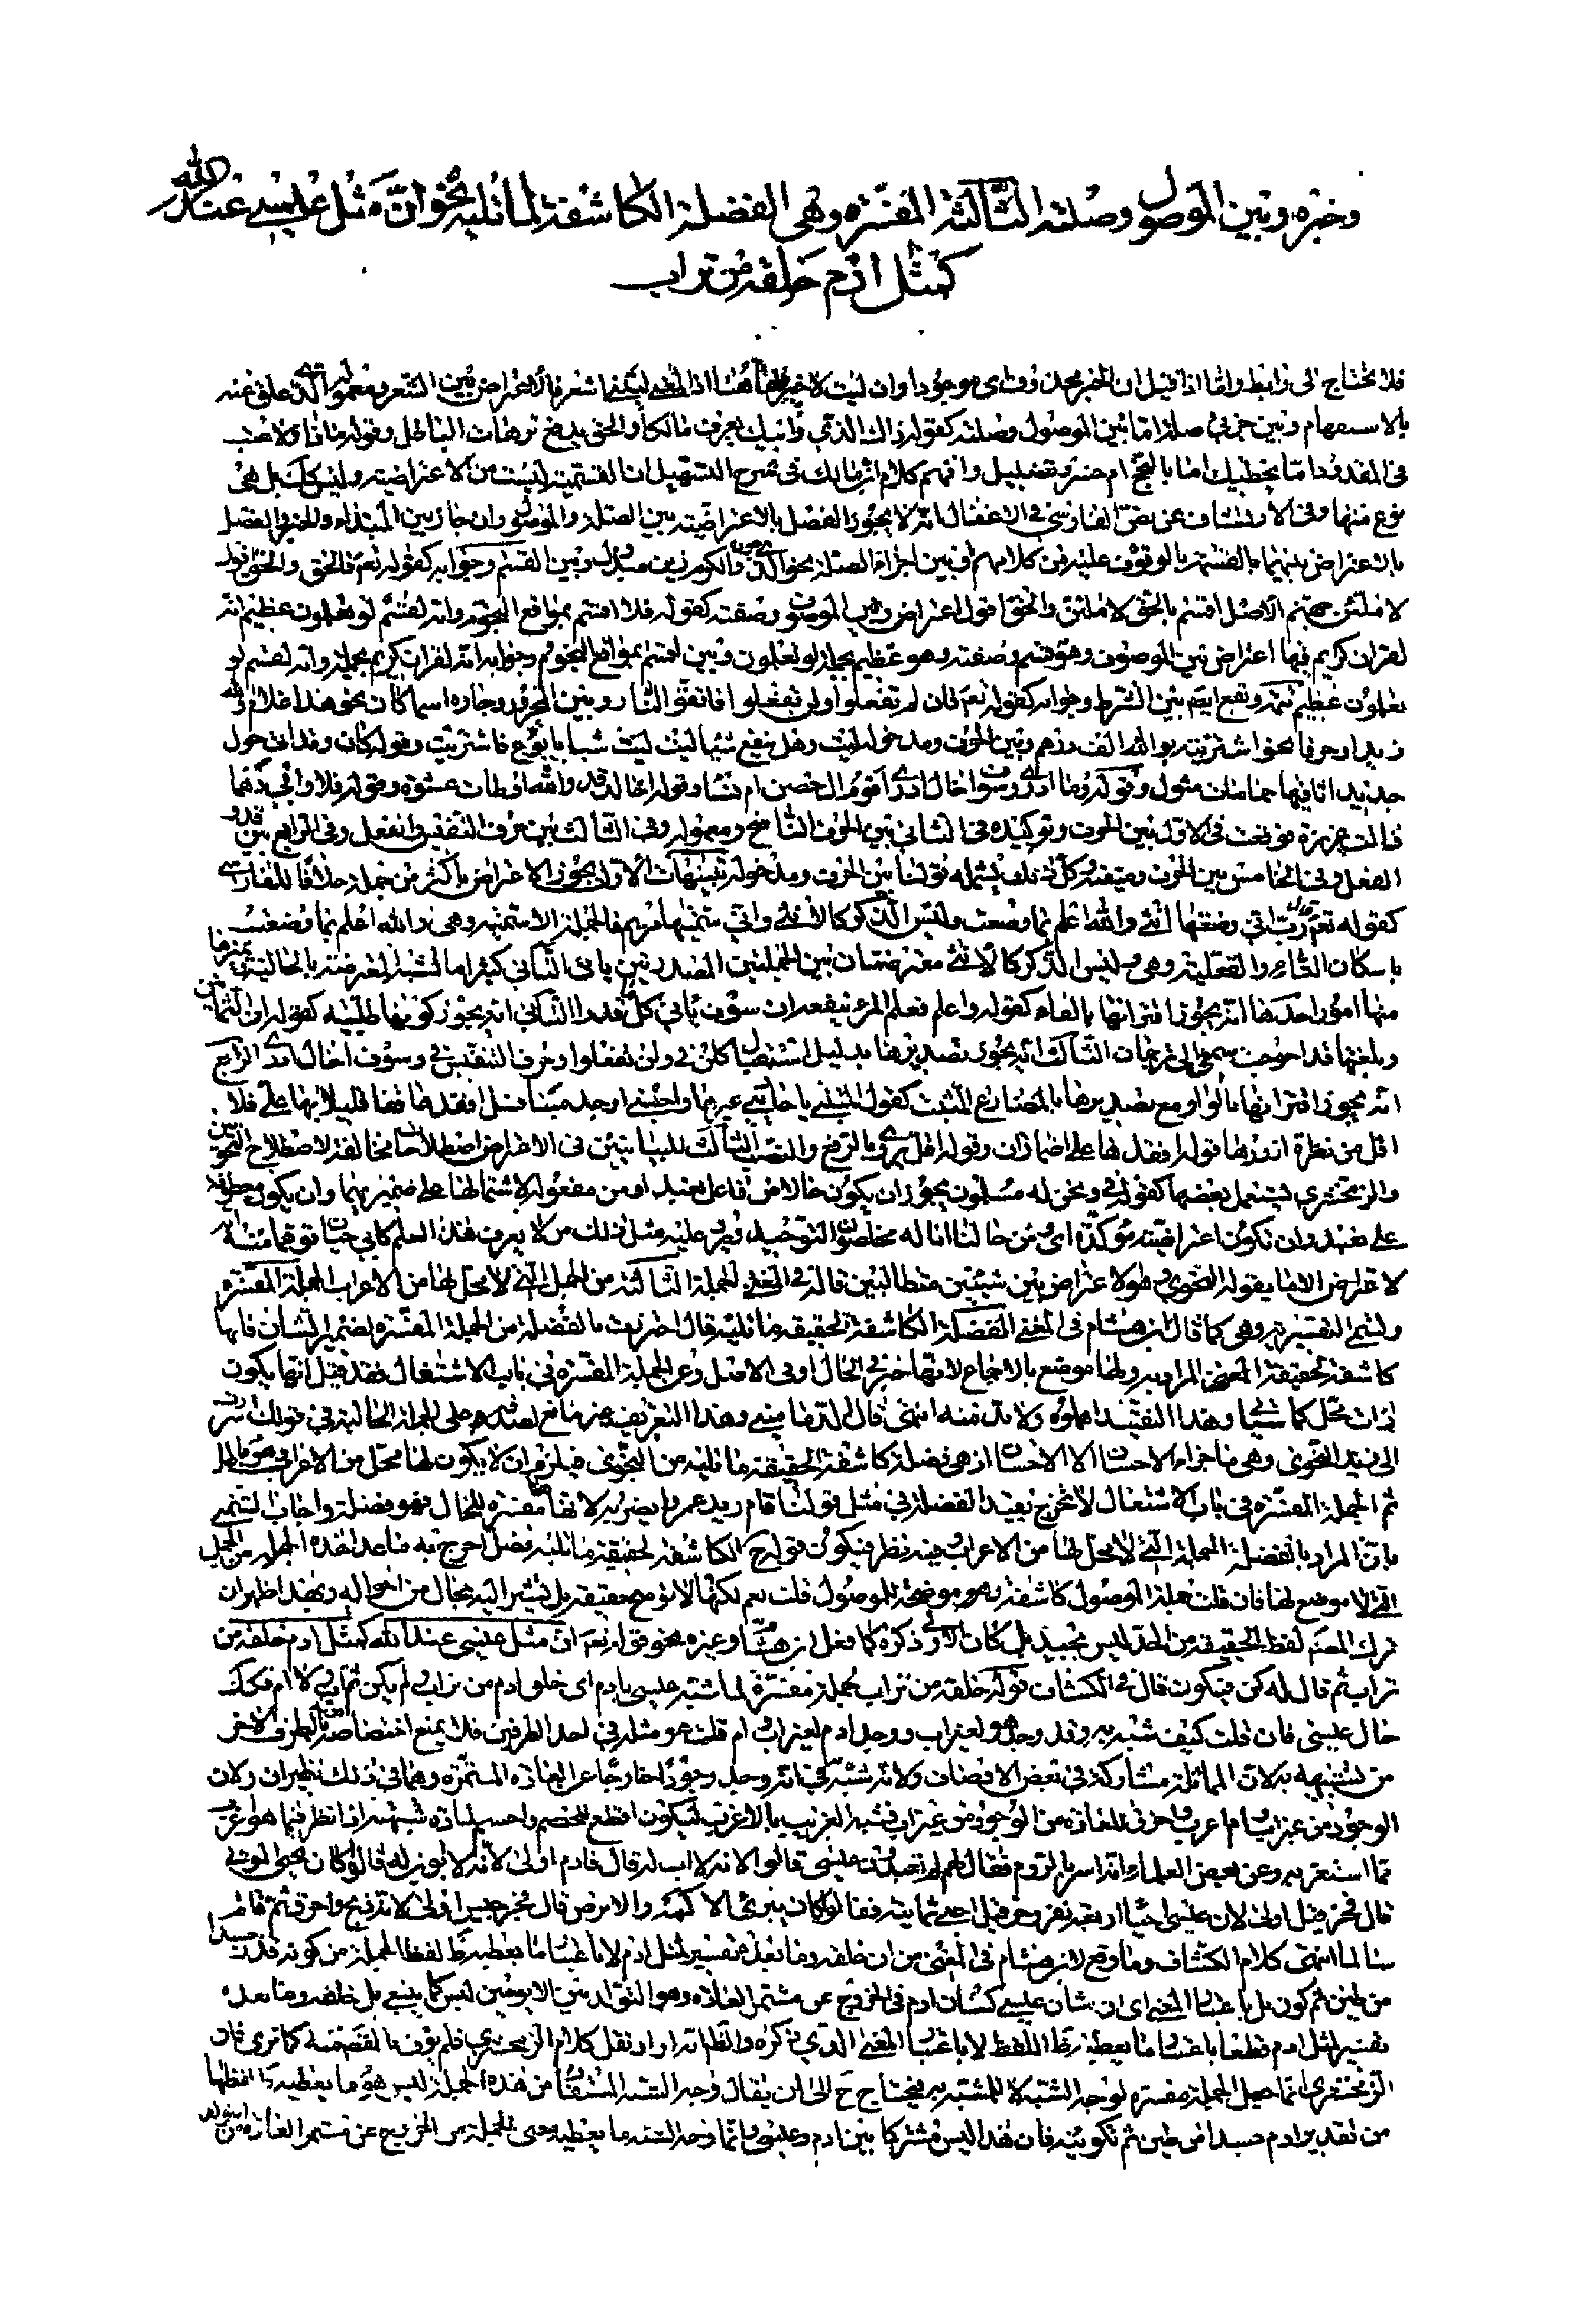 وخبره وبين الموصول وصلته الثالثة المفسرة وهي الفضلة الكاشفة لما تليه نحو ان مثل عيسى عند الله
كمثل ادم خلقه من تراب
فلا يحتاج الى رابط واما اذا قيل ان الخبر محذوف اى موجود او ان ليت لا خبر لها هنا اذ المعنى ليتني اشعر فالاعتراض بين الشعر ومعموله الذي علق عنه
بالاستفهام وبين جزئي صلة اما بين الموصول وصلته كقوله ذاك الذي وابيك يعرف مالكا والحق يدفع ترهات الباطل وقوله ماذا ولا عتب
في المقدور امّا يحظيك بالنجح ام خسر وتضليل وافهم كلام ابن مالك في شرح التسهيل ان القسمية ليست من الاعتراضية وليس كك بل هي
نوع منها وفى الارتشاف عن الفارسي في الاغفال انه لا يجوز الفصل بالاعتراضية بين الصلة والموصول وان جاز بين المبتدا والخبر والفصل
بالاعتراض بينهما بالقسم بالوقوف عليه من كلامهم او بين اجزاء الصلة نحو الذي والكرم زين مبذول وبين القسم وجوابه كقوله تعالى فالحق والحق اقول
لاملئن جهنم الاصل اقسم بالحق لاملئن والحق اقول اعتراض وبين الموصوف وصفته كقوله فلا اقسم بمواقع النجوم وانه لقسم لو تعلمون عظيم انه
لقران كريم فيها اعتراض بين الموصوف وهو قسم وصفته وهو عظيم بجملة لو تعلمون وبين اقسم بمواقع النجوم وجوابه انه لقران كريم بجملة وانه لقسم لو
تعلمون عظيم وتقع ايضا بين الشرط وجوابه كقوله تعالى فان لم تفعلوا ولن تفعلوا فاتقوا النار وبين المجرور وجاره اسما كان نحو هذا غلام والله
زيد او حرفا نحو اشتريته بوالله الف درهم وبين الحرف ومدخوله ليت وهل ينفع شيئا ليت ليت شبابا بوع فاشتريت وقوله كان وقد اتى حول
جديد اثافيها حمامات مثول وقوله وما ادري وسوف اخال ادري اقوم ال حصن ام نساء وقوله اخالد قد والله اوطات عشوة وقوله فلا وابي دهماء
زالت عزيزة فوقعت في الاول بين الحرف وتوكيده وفي الثاني بين الحرف الناسخ ومعموله وفي الثالث بين حرف التنفيس والفعل وفي الرابع بين قد و
الفعل وفي الخامس بين الحرف ومنفيه وكل ذلك يشمله قولنا بين الحرف ومدخوله تنبيهات الاول يجوز الاعتراض باكثر من جملة خلافا للفارسي
كقوله تعالى رب اني وضعتها انثى والله اعلم بما وضعت وليس الذكر كالانثى واني سميتها مريم فالجملة الاسمية وهي والله اعلم بما وضعت
باسكان التاء والفعلية وهي وليس الذكر كالانثى معترضتان بين الجملتين المصدرتين باني الثاني كثيرا ما تشتبه المعترضة بالحالية ويميزها
منها امور احدها انه يجوز اقترانها بالفاء كقوله واعلم فعلم المرء ينفعه ان سوف ياتي كل ما قدرا الثاني انه يجوز كونها طلبية كقوله ان الثمانين
وبلغتها قد احوجت سمعي الى ترجمان الثالث انه يجوز تصديرها بدليل استقبال كلن في ولن تفعلوا وحرف التنفيس في وسوف اخال ادري الرابع
انه يجوز اقترانها بالواو مع تصديرها بالمضارع المثبت كقول المتنبي يا حاديي عيرها واحسبني اوجد ميتا قبيل افقدها قفا قليلا بها علي فلا
اقل من نظرة ازودها قوله افقدها على اضمار ان وقوله اقل يروى بالرفع والنصب الثالث للبيانيين في الاعتراض اصطلاحات مخالفة لاصطلاح النحويين
والزمخشري يستعمل بعضها كقوله في ونحن له مسلمون يجوز ان يكون حالا من فاعل نعبد او من مفعوله لاشتمالها على ضميريهما وان يكون معطوفة
على نعبد وان تكون اعتراضية مؤكدة اى ومن حالنا انا له مخلصون التوحيد ويرد عليه مثل ذلك من لا يعرف هذا العلم كابي حيان توهما منه انه
لا اعتراض الا ما يقوله النحوي وهو الاعتراض بين شيئين متطالبين قاله في المغنى الجملة الثالثة من الجمل التي لا محل لها من الاعراب الجملة المفسرة
وتسمى التفسيرية وهي كما قال ابن هشام في المغنى الفضلة الكاشفة لحقيقة ما تليه قال احترزت بالفضلة من الجملة المفسرة لضمير الشان فانها
كاشفة لحقيقة المعنى المراد به ولها موضع بالاجماع لانها خبر في الحال او في الاصل وعن الجملة المفسرة في باب الاشتغال فقد قيل انها يكون
ذات محل كما سياتي وهذا القيد اهملوه ولا بد منه انتهى قال الدماميني وهذا التعريف غير مانع لصدقه على الجملة الحالية في قولك اسررت
الى زيد النجوى وهي ما جزاء الاحسان الا الاحسان اذ هي فضلة كاشفة لحقيقة ما تليه من النجوى فيلزم ان لا يكون لها محل من الاعراب وهو باطل
ثم الجملة المفسرة في باب الاشتغال لا تخرج بقيد الفضلة في مثل قولنا قام زيد عمرا يضربه لانها مفسرة للحال فهو فضلة واجاب الشمنى
بان المراد بالفضلة الجملة التي لا محل لها من الاعراب وفيه نظر فيكون قوله الكاشفة لحقيقة ما تليه فصل اخرج به ما عدا هذه الجملة من الجمل
التي لا موضع لها فان قلت جملة الموصول كاشفة وموضحة للموصول قلت نعم لكنها لا توضح حقيقته بل تشير اليه بحال من احواله وبهذا ظهر ان
ترك المصنف لفظ الحقيقة من الحد ليس بجيد بل كان الاولى ذكره كما فعل ابن هشام وغيره نحو قوله تعالى ان مثل عيسى عند الله كمثل ادم خلقه من
تراب ثم قال له كن فيكون قال في الكشاف قوله خلقه من تراب جملة مفسرة لما شبه عيسى بادم اى خلق ادم من تراب لم يكن ثم اب ولا ام فكك
حال عيسى فان قلت كيف شبه به وقد وجد هو بغير اب ووجد ادم بغير اب وام قلت هو مثله في احد الطرفين فلا يمنع اختصاصه بالطرف الاخر
من تشبيهه به لان المماثلة مشاركة في بعض الاوصاف ولانه شبه في انه وجد وجودا خارجا عن العادة المستمرة وهما في ذلك نظيران ولان
الوجود من غير اب وام اغرب واخرق للعادة من الوجود من غير اب فشبه الغريب بالاغرب ليكون اقطع للخصم واحسم لمادة شبهته اذا نظر فيما هو اغرب
مما استغربه وعن بعض العلماء انه اسر بالروم فقال لهم لم تعبدون عيسى قالوا لانه لا اب له قال فادم اولى لانه لا ابوين له قالوا كان يحيى الموتى
قال فحزقيل اولى لان عيسى احيا اربعة نفر وحزقيل احيى ثمانية فقالوا كان يبرئ الاكمه والابرص قال فجرجيس اولى لانه ذبح واحرق ثم قام
سالما انتهى كلام الكشاف وما وقع لابن هشام في المغنى من ان خلقه وما بعده تفسير لمثل ادم لا باعتبار ما يعطيه ظاهر لفظ الجملة من كونه قدر جسدا
من طين ثم كون بل باعتبار المعنى اى ان شان عيسى كشان ادم في الخروج عن مستمر العادة وهو التولد بين الابوين ليس كما ينبغي بل خلقه وما بعده
تفسير لمثل ادم قطعا باعتبار ما يعطيه ظاهر اللفظ لا باعتبار المعنى الذي ذكره والظاهر انه اراد نقل كلام الزمخشري فلم يوف بالقصد منه كما ترى فان
الزمخشري انما جعل الجملة مفسرة لوجه الشبه لا للمشبه به فيحتاج ح الى ان يقال وجه الشبه المستفاد من هذه الجملة ليس هو ما يعطيه ظاهر لفظها
من تقدير ادم جسدا من طين ثم تكوينه فان هذا ليس مشتركا بين ادم وعيسى وانما وجه الشبه ما يعطيه معنى الجملة من الخروج عن مستمر العادة من التولد